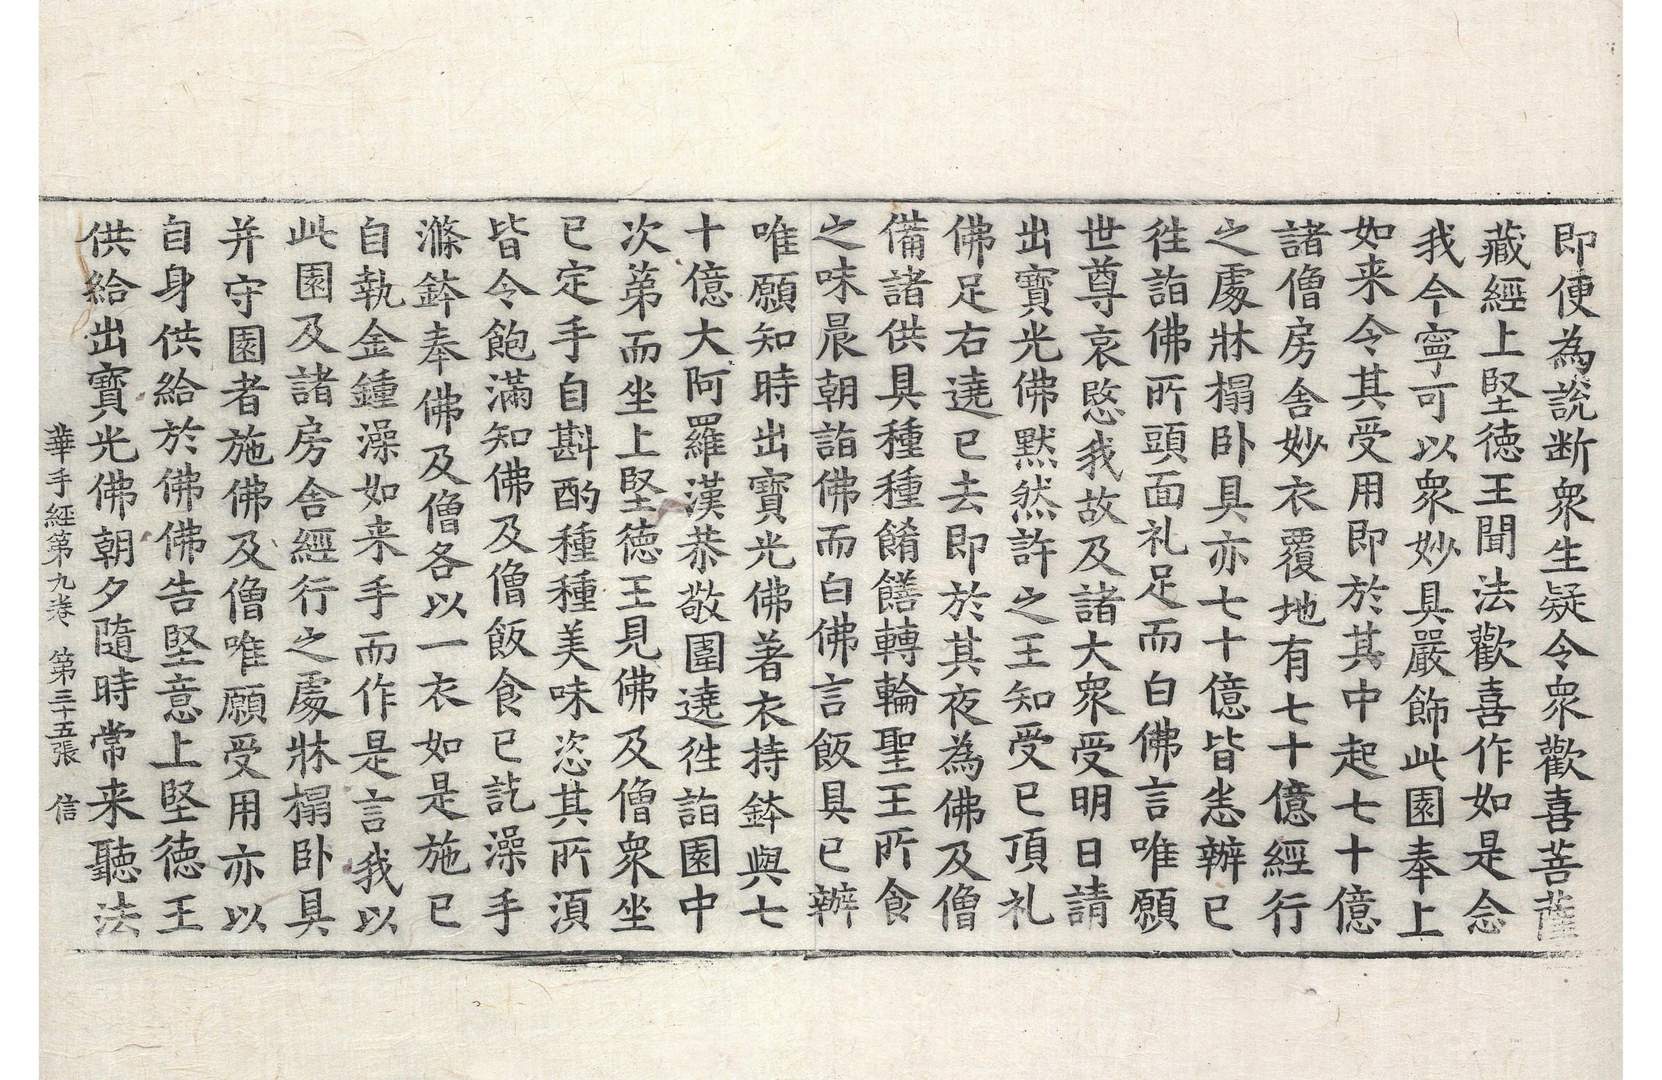 即便為說断衆生疑令衆歡喜菩薩
藏經上堅徳王聞法歡喜作如是念
我今寧可以衆妙具嚴飾此園奉上
如来令其受用即於其中起七十億
諸僧房舎妙衣覆地有七十億經行
之處牀榻卧具亦七十億皆悉辦已
徃詣佛所頭面礼足而白佛言唯願
世尊哀愍我故及諸大衆受明日請
出寶光佛默然許之王知受已頂礼
佛足右遶已去即於其夜為佛及僧
備諸供具種種餚饍轉輪聖王所食
之味晨朝詣佛而白佛言飯具已辦
唯願知時出寶光佛著衣持鉢與七
十億大阿羅漢恭敬圍遶徃詣園中
次第而坐上堅徳王見佛及僧衆坐
已定手自斟酌種種美味恣其所湏
皆令飽滿知佛及僧飯食已訖澡手
滌鉢奉佛及僧各以一衣如是施已
自執金鍾澡如来手而作是言我以
此園及諸房舎經行之處牀榻卧具
并守園者施佛及僧唯願受用亦以
自身供給於佛佛告堅意上堅徳王
供給出寶光佛朝夕隨時常来聽法
華手經第九卷 第三十五張 信